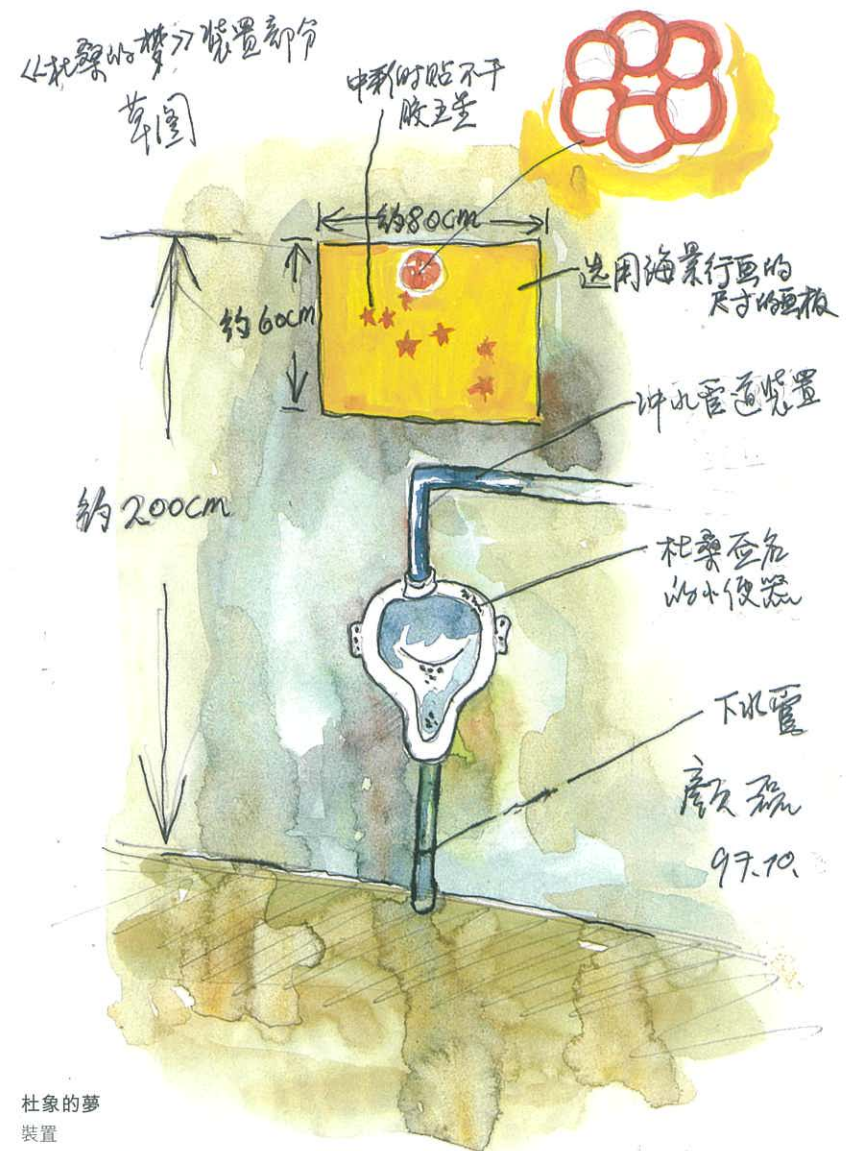 《杜桑的梦》装置部分
草图
中彩时贴不干
胶五星
约80cm
选用海景行画的
尺寸的画板
约60cm
冲水管道装置
约200cm
杜桑签名
的小便器
下水管
颜磊
97.10.
杜象的夢
裝置